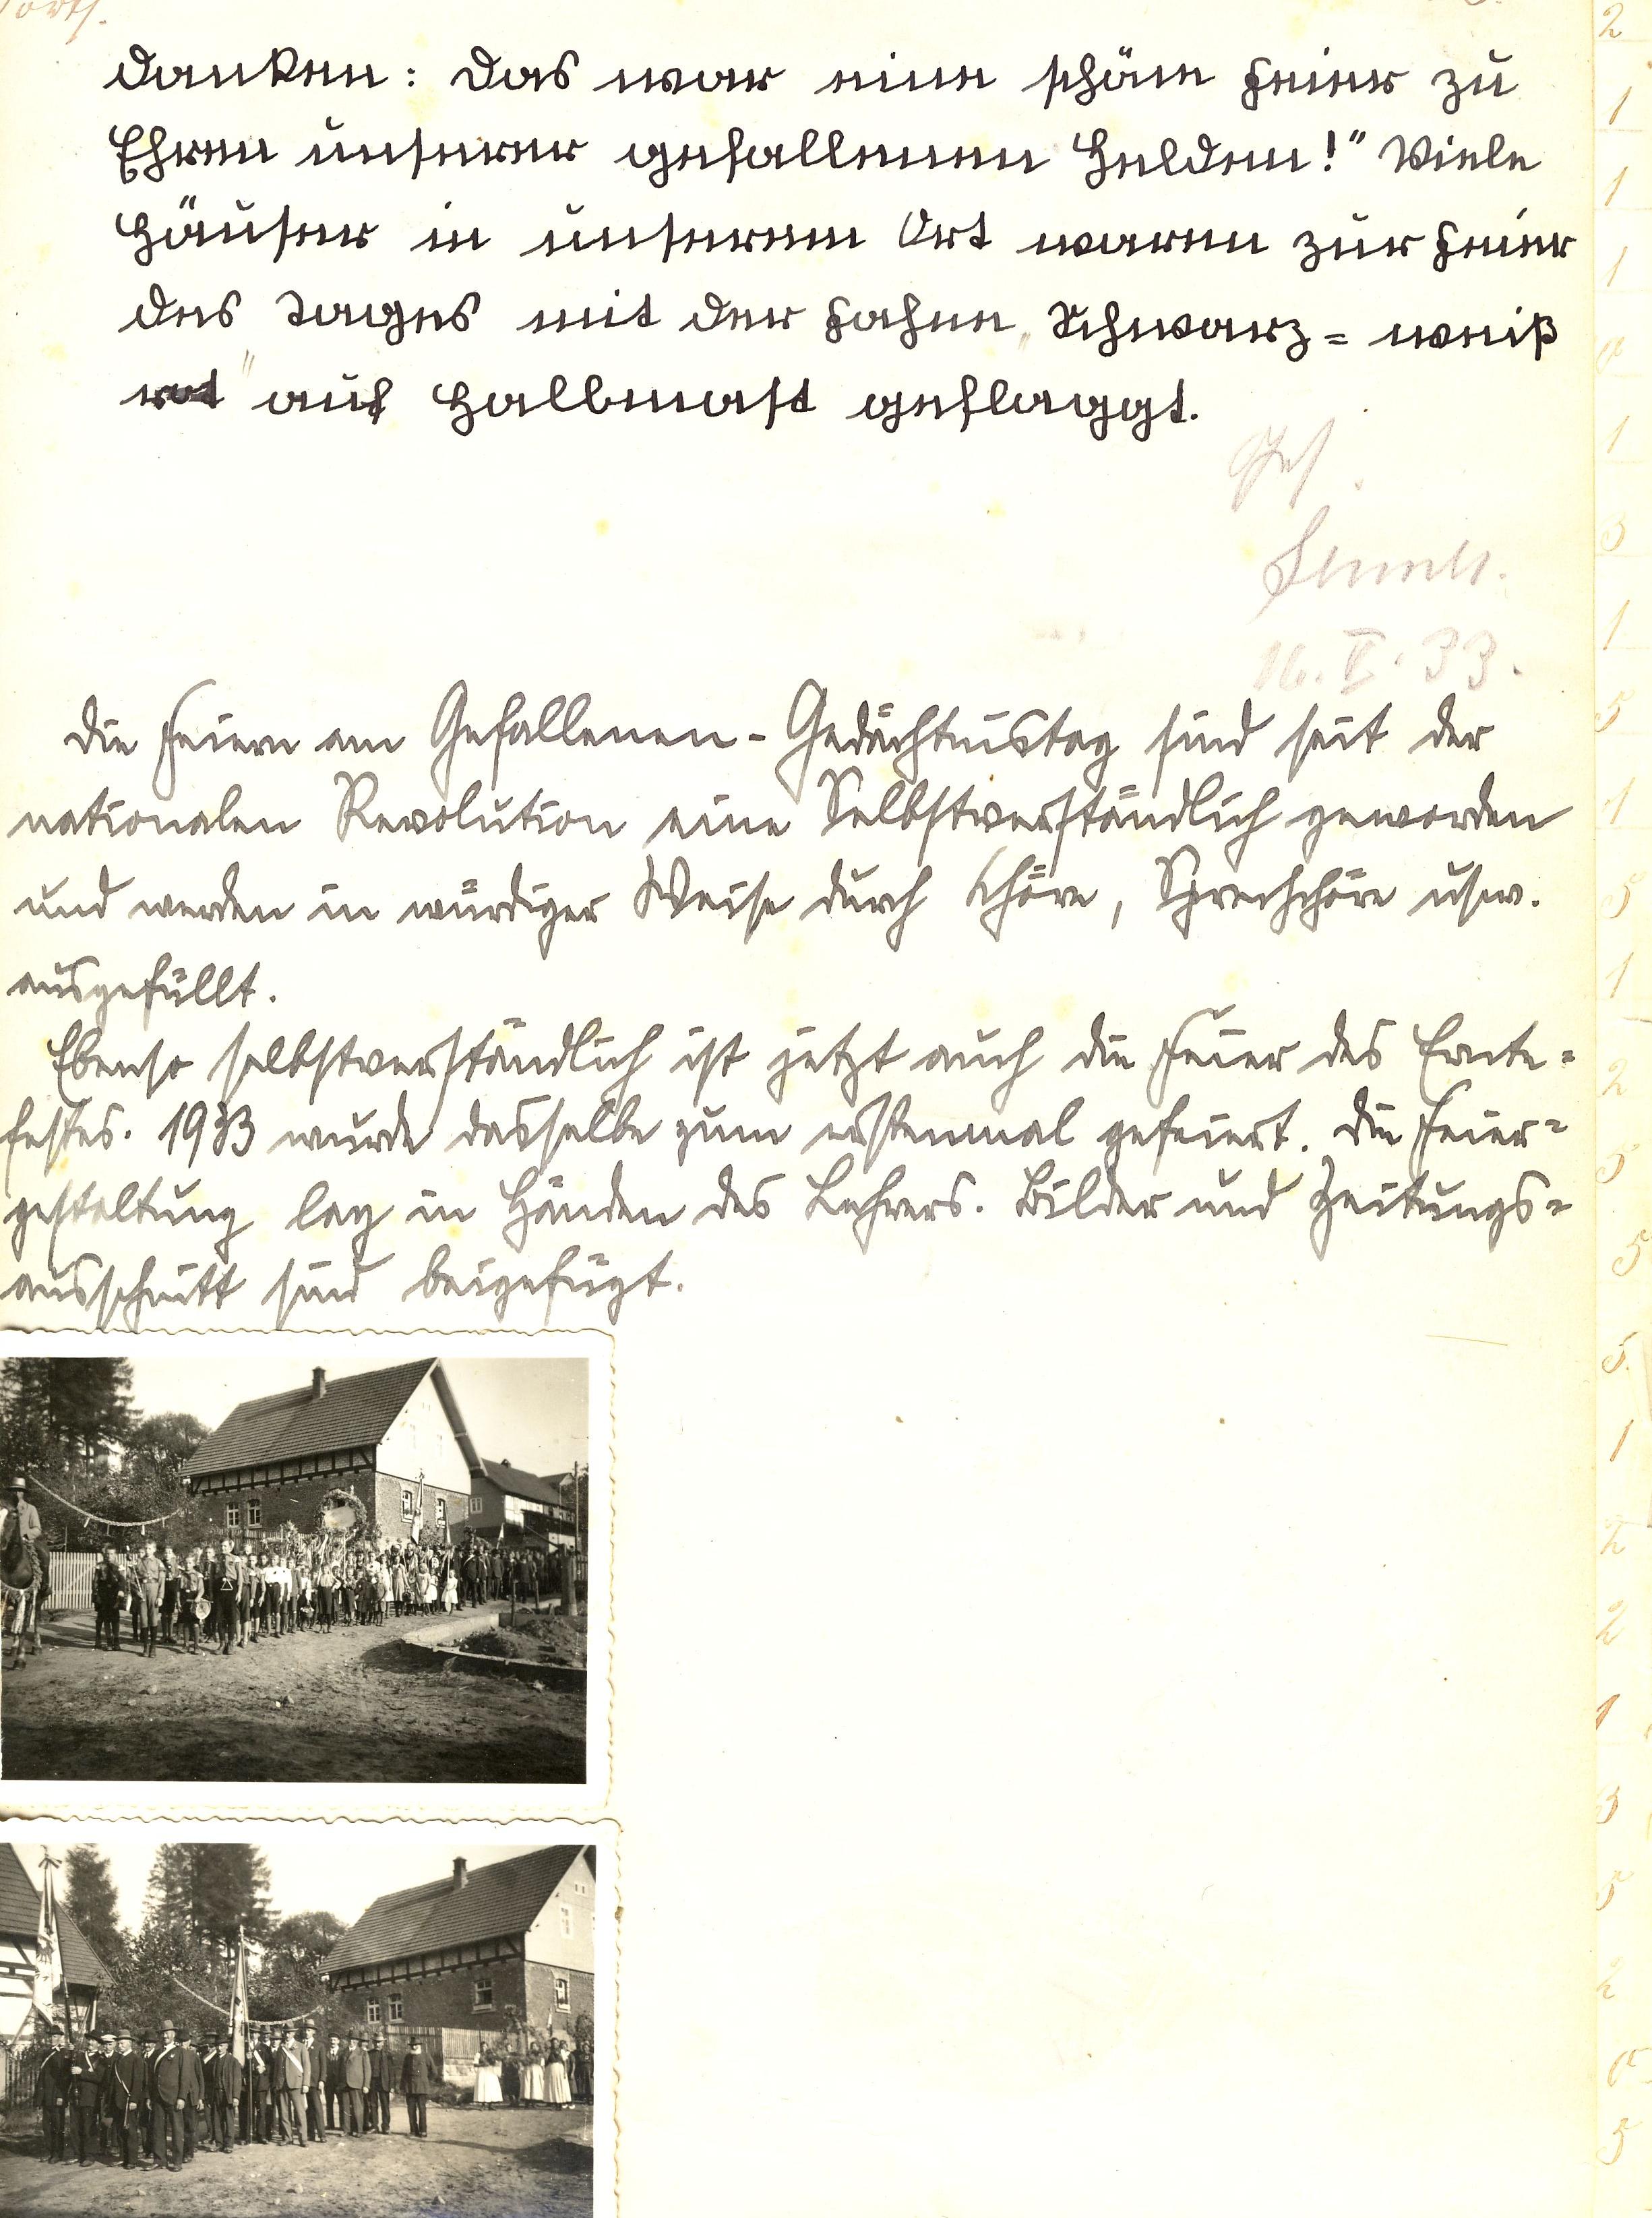 danken: Das war eine schöne Feier zu
Ehren unserer gefallenen Helden!" Viele
Häuser in unserem Ort waren zur Feier
des Tages mit der Fahne „Schwarz=weiß
rot" auf Halbmast geflaggt.
Ges.
16. V. 33.
Die Feiern am Gefallenen-Gedächtnistag sind seit der
nationalen Revolution eine Selbstverständlich geworden
und werden in würdiger Weise durch Chöre, Sprechchöre usw.
ausgefüllt.
Ebenso selbstverständlich ist jetzt auch die Feier des Ernte=
festes. 1933 wurde dasselbe zum erstenmal gefeiert. Die Feier=
gestaltung lag in Händen des Lehrers. Bilder und Zeitungs=
ausschnitt sind beigefügt.